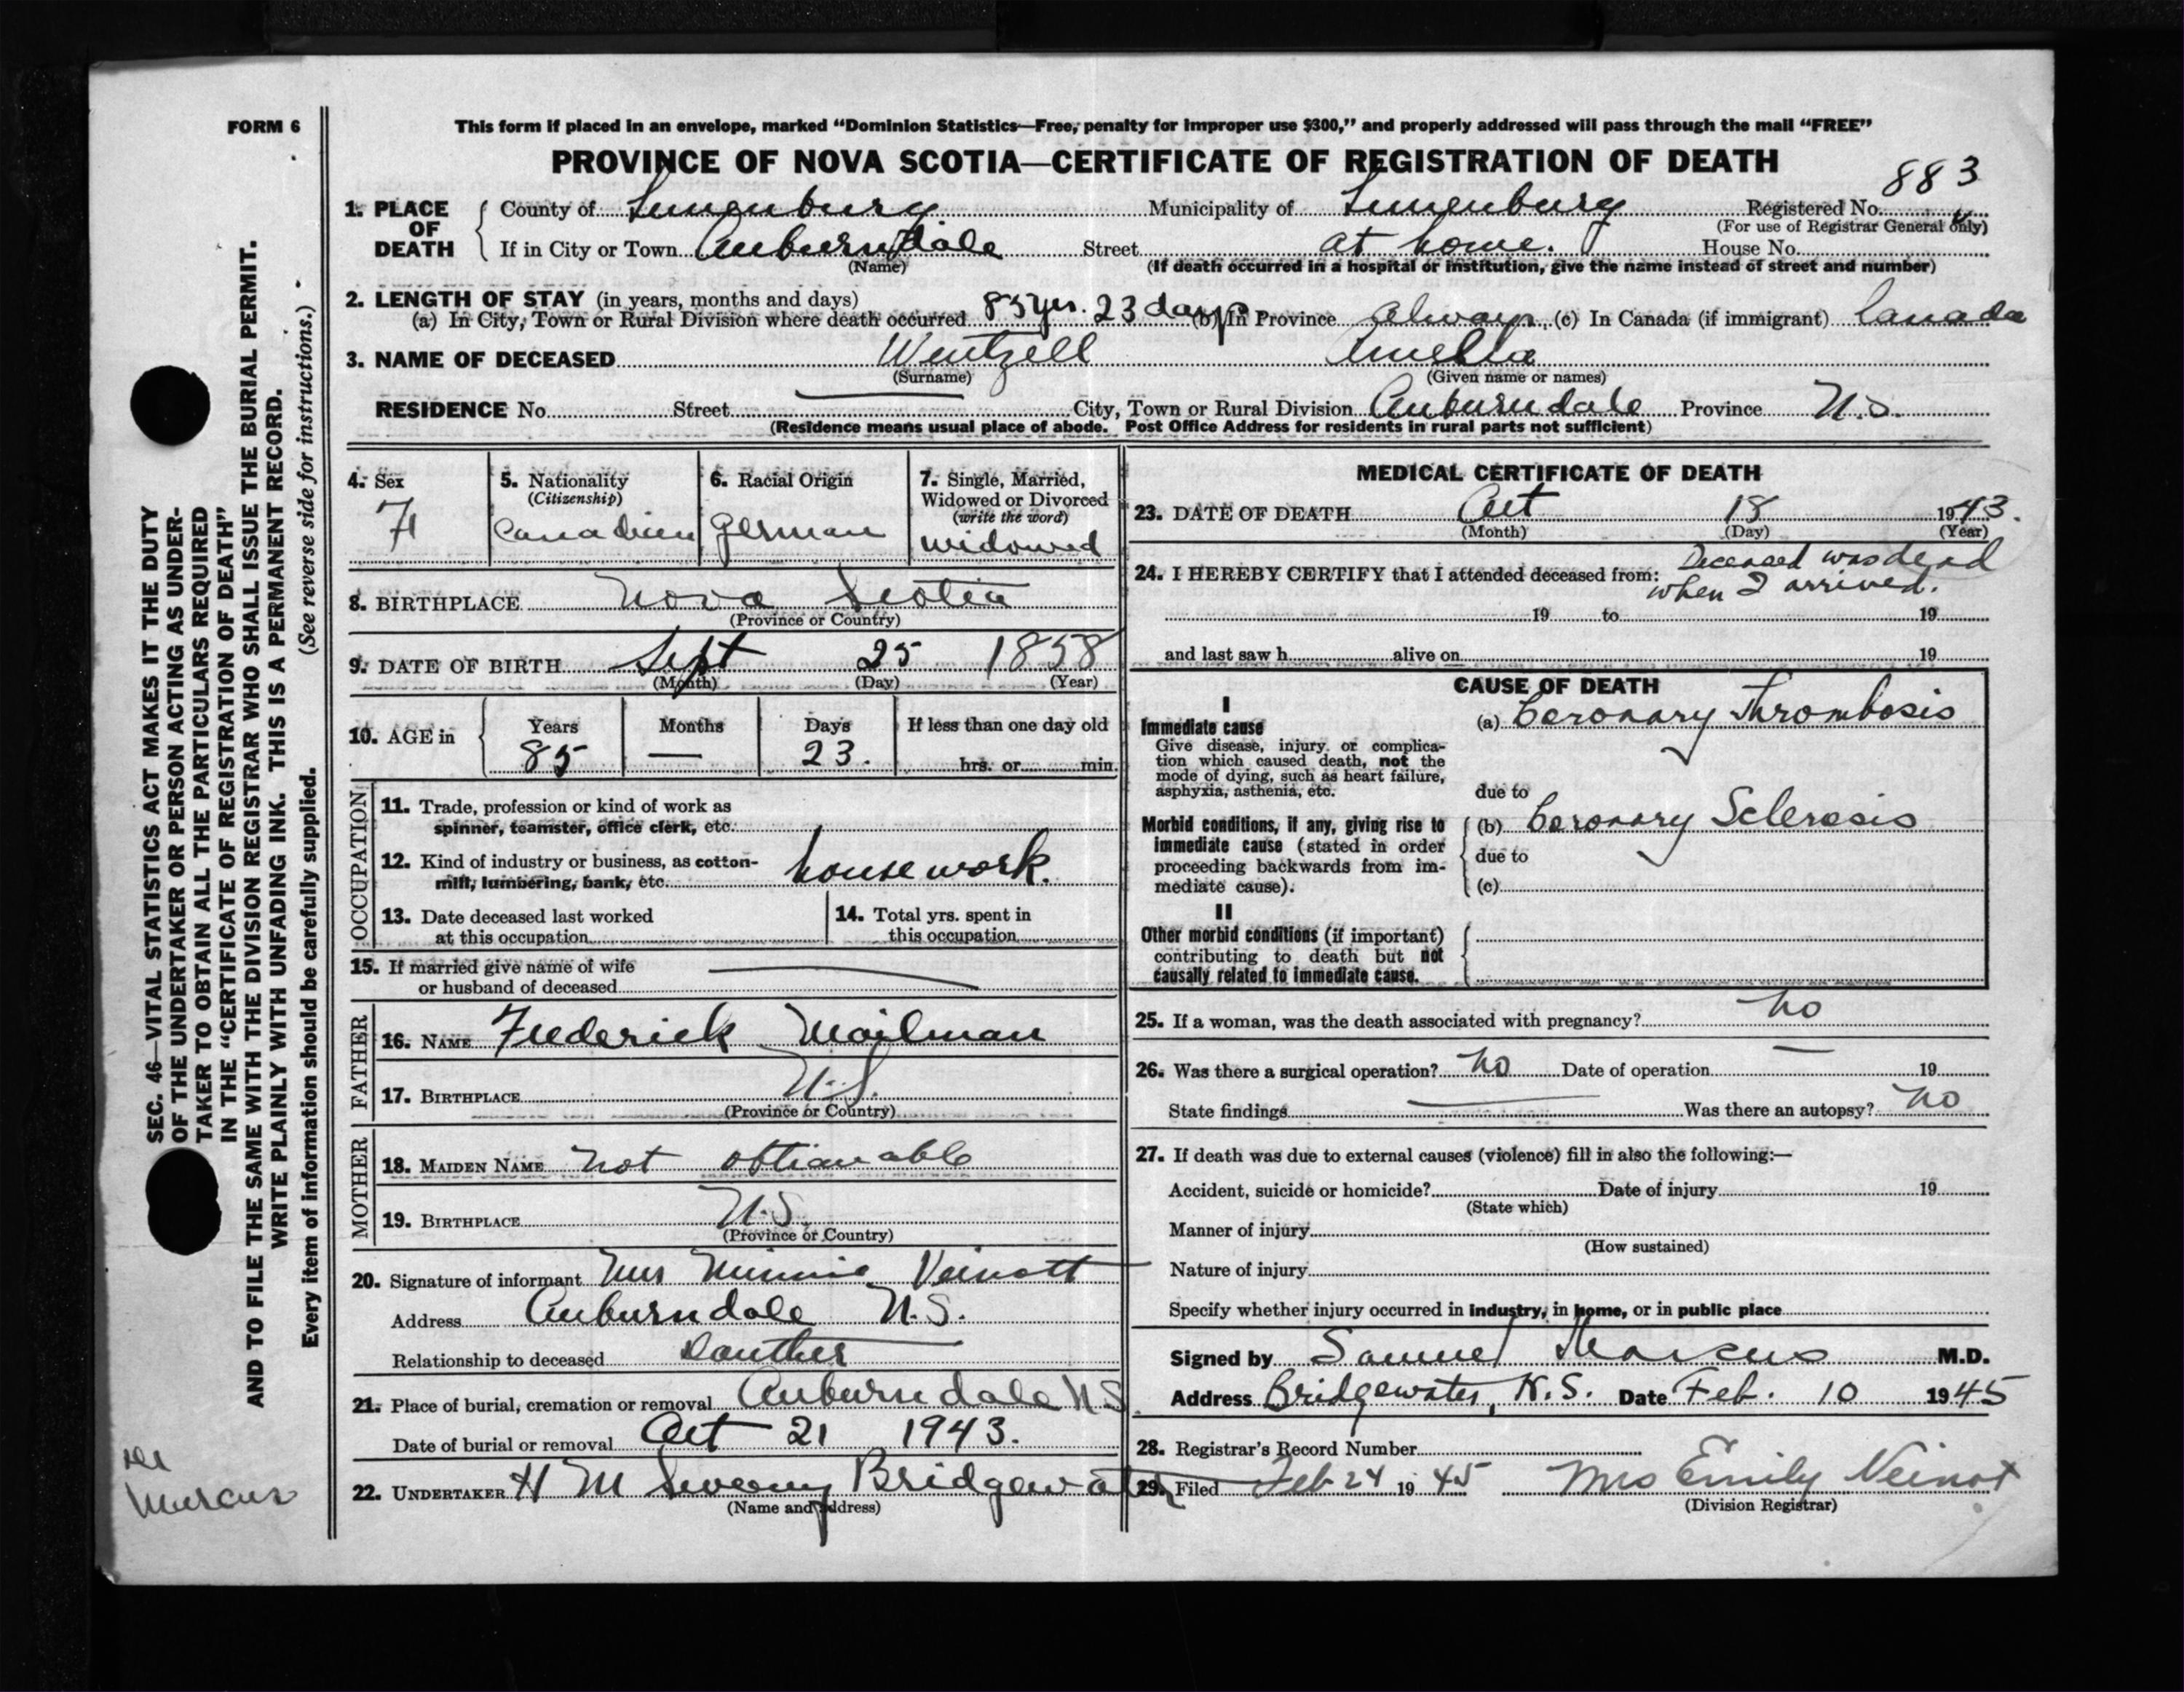 FORM 6
This form if placed in an envelope, marked "Dominion Statistics—Free, penalty for improper use $300," and properly addressed will pass through the mail "FREE"
PROVINCE OF NOVA SCOTIA—CERTIFICATE OF REGISTRATION OF DEATH
883
1. PLACE OF DEATH County of Lunenburg Municipality of Lunenburg Registered No.
(For use of Registrar General only)
If in City or Town Auburndale Street at home. House No.
(Name) (If death occurred in a hospital or institution, give the name instead of street and number)
2. LENGTH OF STAY (in years, months and days)
(a) In City, Town or Rural Division where death occurred 85 yrs. 23 days (b) In Province always (c) In Canada (if immigrant) Canada
3. NAME OF DECEASED Wentzell Amelia
(Surname) (Given name or names)
RESIDENCE No. Street City, Town or Rural Division Auburndale Province N.S.
(Residence means usual place of abode. Post Office Address for residents in rural parts not sufficient)
4. Sex
F
5. Nationality
(Citizenship)
Canadian
6. Racial Origin
German
7. Single, Married,
Widowed or Divorced
(write the word)
widowed
8. BIRTHPLACE Nova Scotia
(Province or Country)
9. DATE OF BIRTH Sept 25 1858
(Month) (Day) (Year)
10. AGE in Years Months Days If less than one day old
85 — 23. hrs. or min.
OCCUPATION
11. Trade, profession or kind of work as
spinner, teamster, office clerk, etc.
12. Kind of industry or business, as cotton-
mill, lumbering, bank, etc. house work.
13. Date deceased last worked
at this occupation
14. Total yrs. spent in
this occupation
15. If married give name of wife
or husband of deceased —
FATHER
16. NAME Frederick Mailman
17. BIRTHPLACE N.S.
(Province or Country)
MOTHER
18. MAIDEN NAME not obtianable
19. BIRTHPLACE N.S.
(Province or Country)
20. Signature of informant Mrs Minnie Veinott
Address Auburndale N.S.
Relationship to deceased Douther
21. Place of burial, cremation or removal Auburndale N.S.
Date of burial or removal Oct 21 1943.
22. UNDERTAKER H M Sweeny Bridgewater
(Name and address)
MEDICAL CERTIFICATE OF DEATH
23. DATE OF DEATH Oct 18 1943.
(Month) (Day) (Year)
24. I HEREBY CERTIFY that I attended deceased from: Deceased was dead
when I arrived.
19 to 19
and last saw h alive on 19
CAUSE OF DEATH
I
Immediate cause
Give disease, injury or complica-
tion which caused death, not the
mode of dying, such as heart failure,
asphyxia, asthenia, etc.
(a) Coronary Thrombosis
due to
Morbid conditions, if any, giving rise to
immediate cause (stated in order
proceeding backwards from im-
mediate cause).
(b) Coronary Sclerosis
due to
(c)
II
Other morbid conditions (if important)
contributing to death but not
causally related to immediate cause.
25. If a woman, was the death associated with pregnancy? no
26. Was there a surgical operation? no Date of operation — 19
State findings — Was there an autopsy? no
27. If death was due to external causes (violence) fill in also the following:—
Accident, suicide or homicide? Date of injury 19
(State which)
Manner of injury
(How sustained)
Nature of injury
Specify whether injury occurred in industry, in home, or in public place
Signed by Samuel Marcus M.D.
Address Bridgewater, N.S. Date Feb. 10 1945
28. Registrar's Record Number
29. Filed Feb 24 1945 Mrs Emily Veinot
(Division Registrar)
SEC. 46—VITAL STATISTICS ACT MAKES IT THE DUTY
OF THE UNDERTAKER OR PERSON ACTING AS UNDER-
TAKER TO OBTAIN ALL THE PARTICULARS REQUIRED
IN THE "CERTIFICATE OF REGISTRATION OF DEATH"
AND TO FILE THE SAME WITH THE DIVISION REGISTRAR WHO SHALL ISSUE THE BURIAL PERMIT.
WRITE PLAINLY WITH UNFADING INK. THIS IS A PERMANENT RECORD.
Every item of information should be carefully supplied. (See reverse side for instructions.)
Marcus